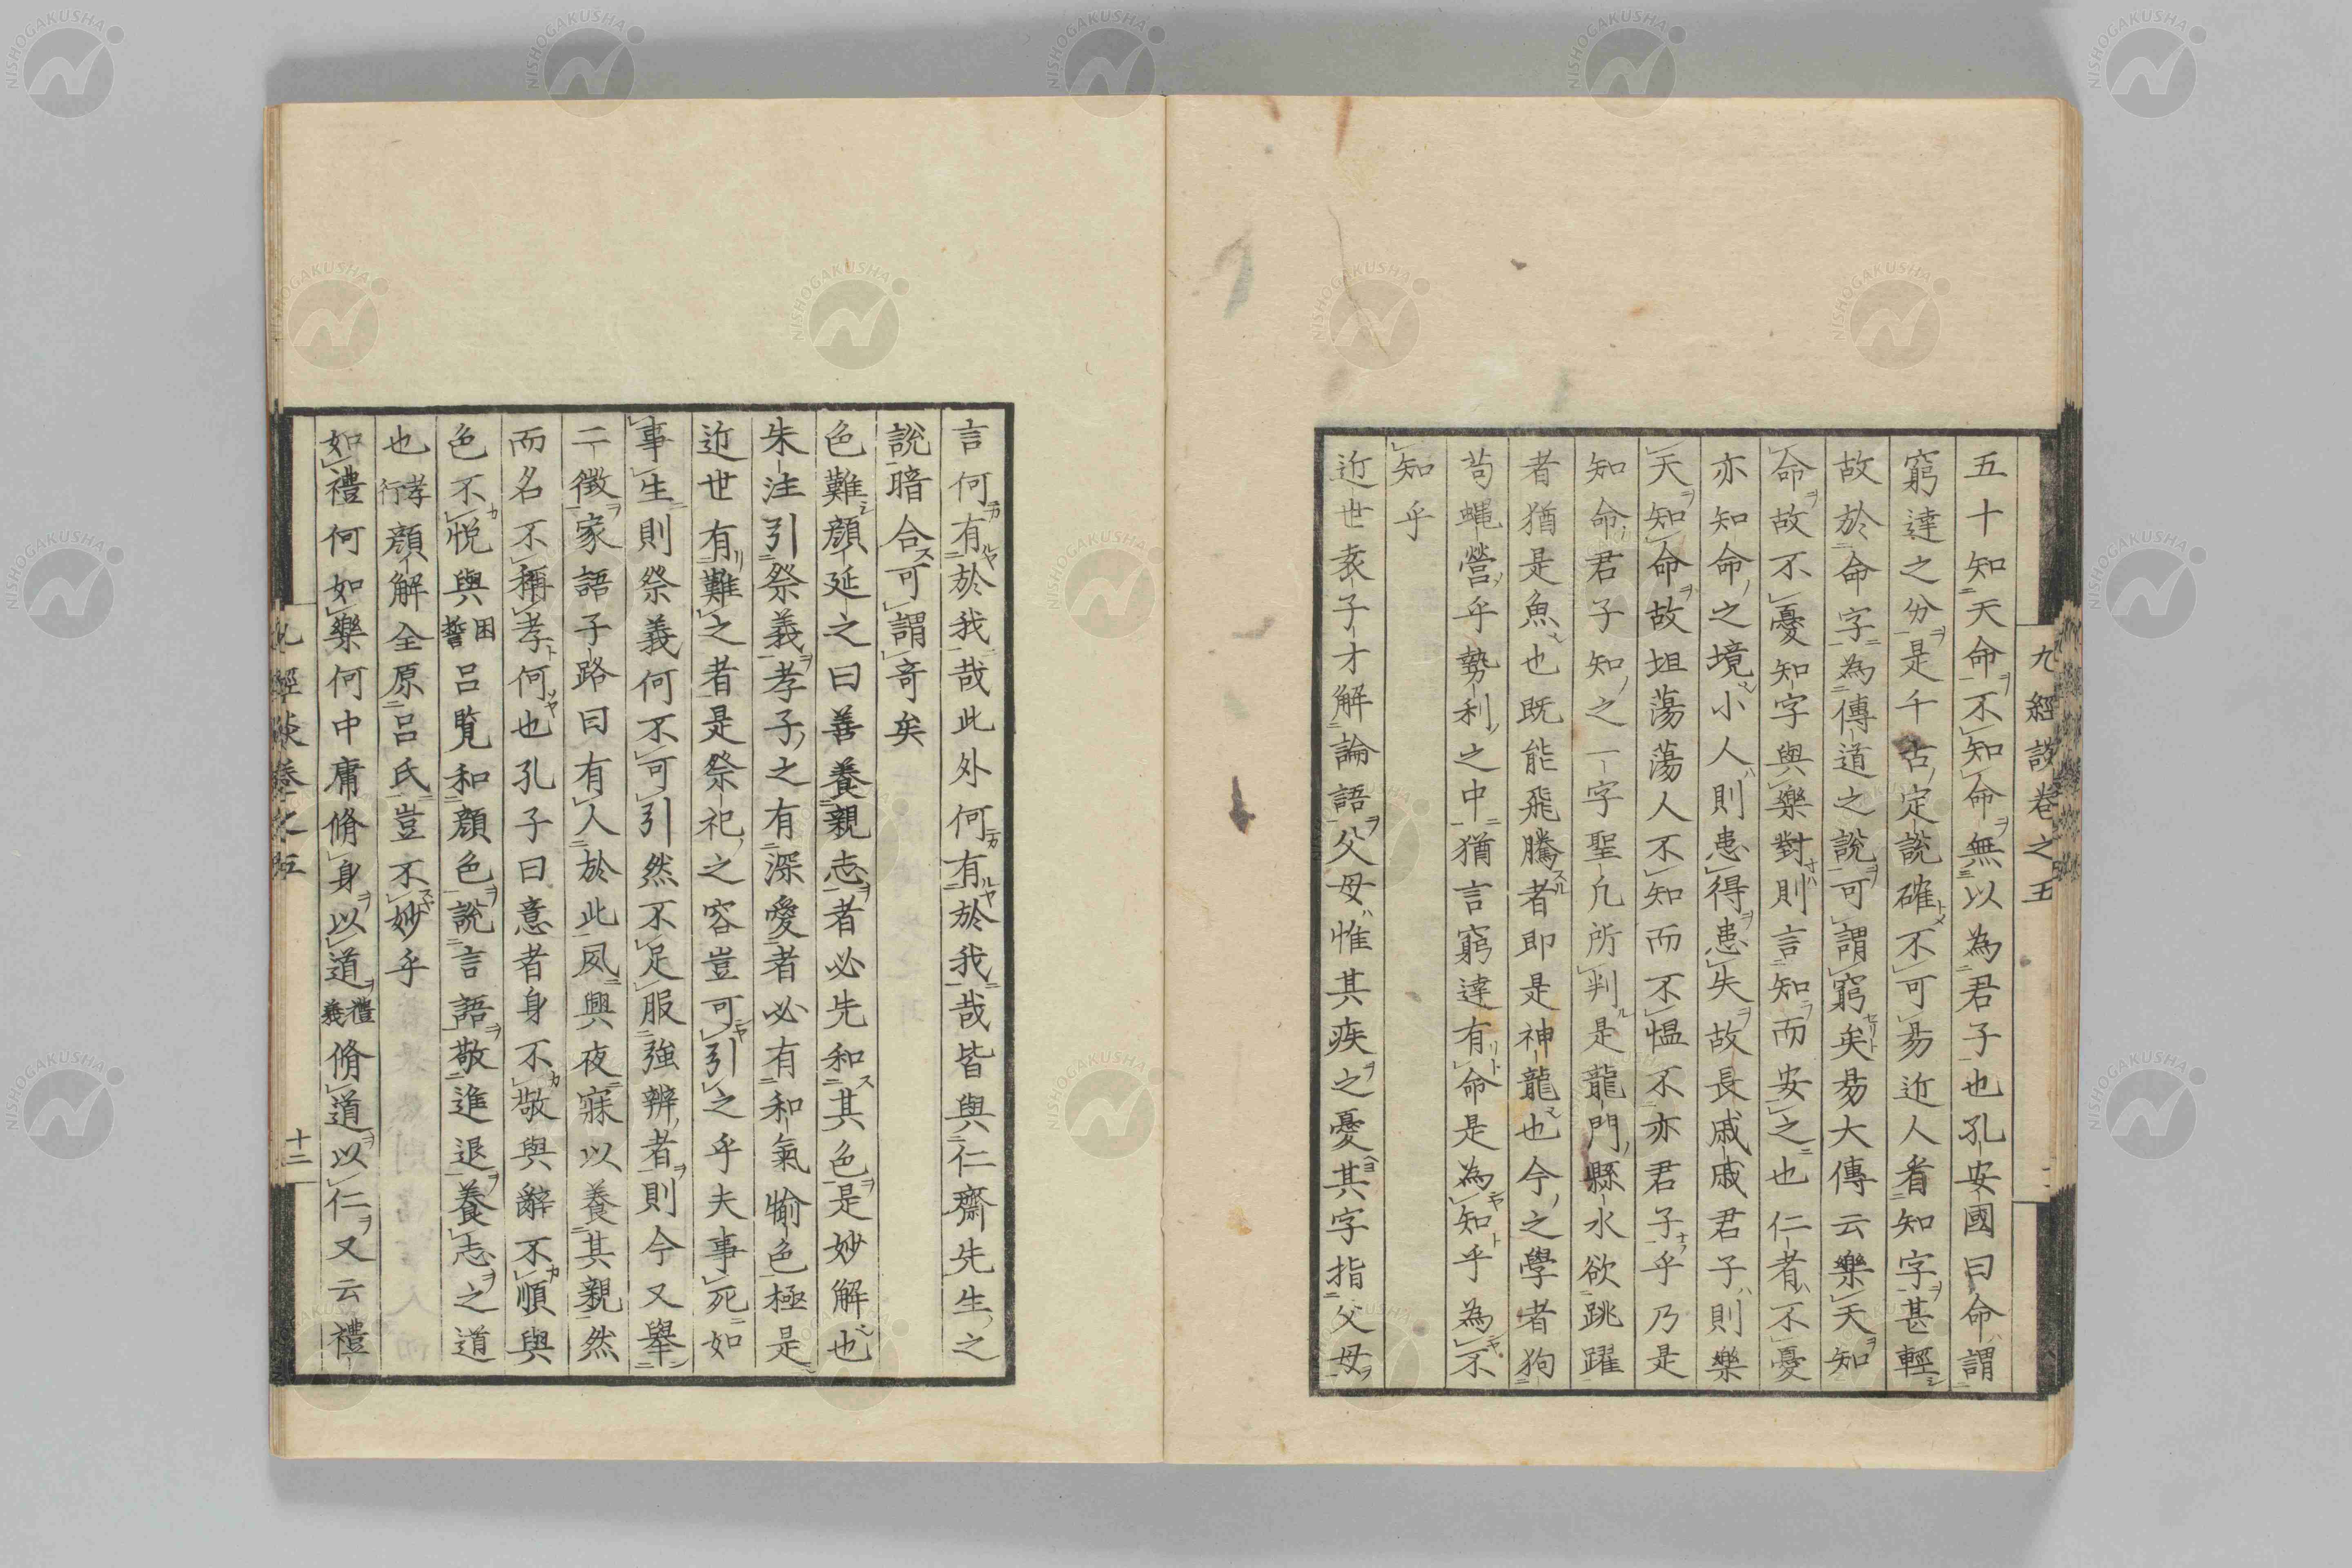 九經談卷之五
五十知天命不知命無以為君子也孔安國曰命謂
窮達之分是千古定說確不可易近人看知字甚輕
故於命字為傳道之說可謂窮矣易大傳云樂天知
命故不憂知字與樂對則言知而安之也仁者不憂
亦知命之境小人則患得患失故長戚戚君子則樂
天知命故坦蕩蕩人不知而不慍不亦君子乎乃是
知命君子知之一字聖凡所判是龍門縣水欲跳躍
者猶是魚也既能飛騰者即是神龍也今之學者狥
苟蠅營乎勢利之中猶言窮達有命是為知乎為不
知乎
近世袤子才解論語父母惟其疾之憂其字指父母
言何有於我哉此外何有於我哉皆與仁齋先生之
說暗合可謂奇矣
色難顏延之曰善養親志者必先和其色是妙解也
朱注引祭義孝子之有深愛者必有和氣愉色極是
近世有難之者是祭祀之容豈可引之乎夫事死如
事生則祭義何不可引然不足服強辨者則今又舉
二徵家語子路曰有人於此夙興夜寐以養其親然
而名不稱孝何也孔子曰意者身不敬與辭不順與
色不悅與困誓呂覧和顏色說言語敬進退養志之道
也孝行顏解全原呂氏豈不妙乎
如禮何如樂何中庸脩身以道禮義脩道以仁又云禮
九經談卷之五
十二
NISHOGAKUSHA